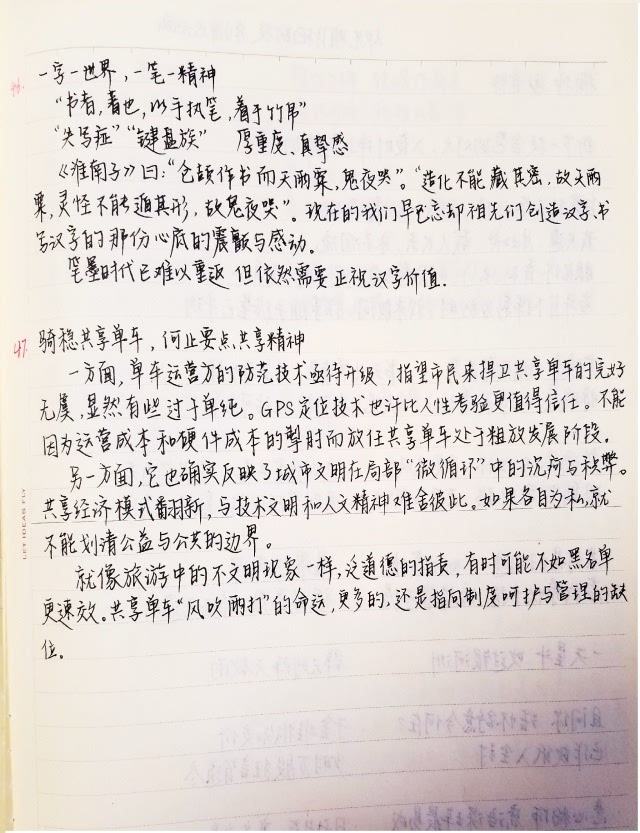 46. 一字一世界，一笔一精神
“书者，著也，以手执笔，着于竹帛”
“失写症” “键盘族” 厚重度、真挚感
《淮南子》曰：“仓颉作书而天雨粟，鬼夜哭”。“造化不能藏其密，故天雨
粟，灵怪不能遁其形，故鬼夜哭”。现在的我们早已忘却祖先们创造汉字、书
写汉字的那份心底的震颤与感动。
笔墨时代已难以重返，但依然需要正视汉字价值.
47. 骑稳共享单车，何止要点共享精神
一方面，单车运营方的防范技术亟待升级，指望市民来捍卫共享单车的完好
无虞，显然有些过于单纯。GPS定位技术也许比人性考验更值得信任。不能
因为运营成本和硬件成本的掣肘而放任共享单车处于粗放发展阶段。
另一方面，它也确实反映了城市文明在局部“微循环”中的沉疴与积弊。
共享经济模式翻新，与技术文明和人文精神难舍彼此。如果各自为私，就
不能划清公益与公共的边界。
就像旅游中的不文明现象一样，泛道德的指责，有时可能不如黑名单
更速效。共享单车“风吹雨打”的命运，更多的，还是指向制度呵护与管理的缺
位。
LET IDEAS FLY